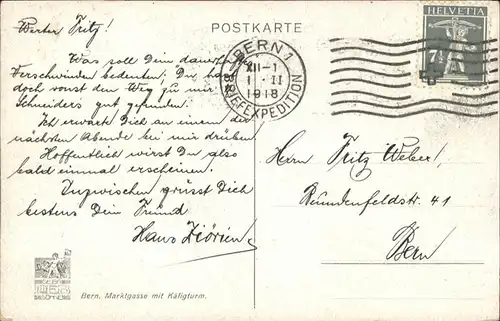 Werter Fritz!
Was soll Dein dauerhaft
Verschwinden bedeuten; Du hast
doch sonst den Weg zu mir
Schneiders gut gefunden.
Ich erwarte Dich an einem der
nächsten Abende bei mir drüben.
Hoffentlich wirst Du also
bald einmal erscheinen.
Inzwischen grüsst Dich
bestens Dein Freund
Hans
POSTKARTE
BERN 1
XII-1
1. II
1918
BRIEFEXPEDITION
HELVETIA
7½
Herrn Fritz Weber,
feldstr. 41
Bern
Bern, Marktgasse mit Käfigturm.